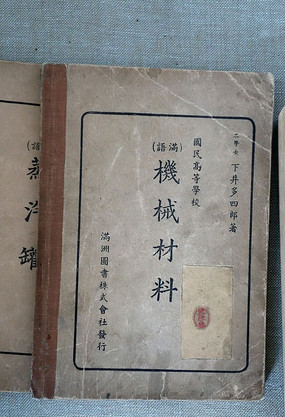 下井多四郎著
國民高等學校
(滿語)
機械材料
滿洲圖書株式會社發行
(語
蒸汽罐